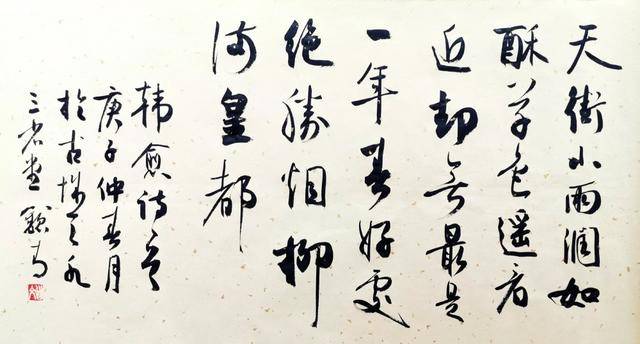 天街小雨润如
酥草色遥看
近却無最是
一年春好处
绝勝烟柳
满皇都
韩愈诗意
庚子仲春月
於古城天水
三省堂